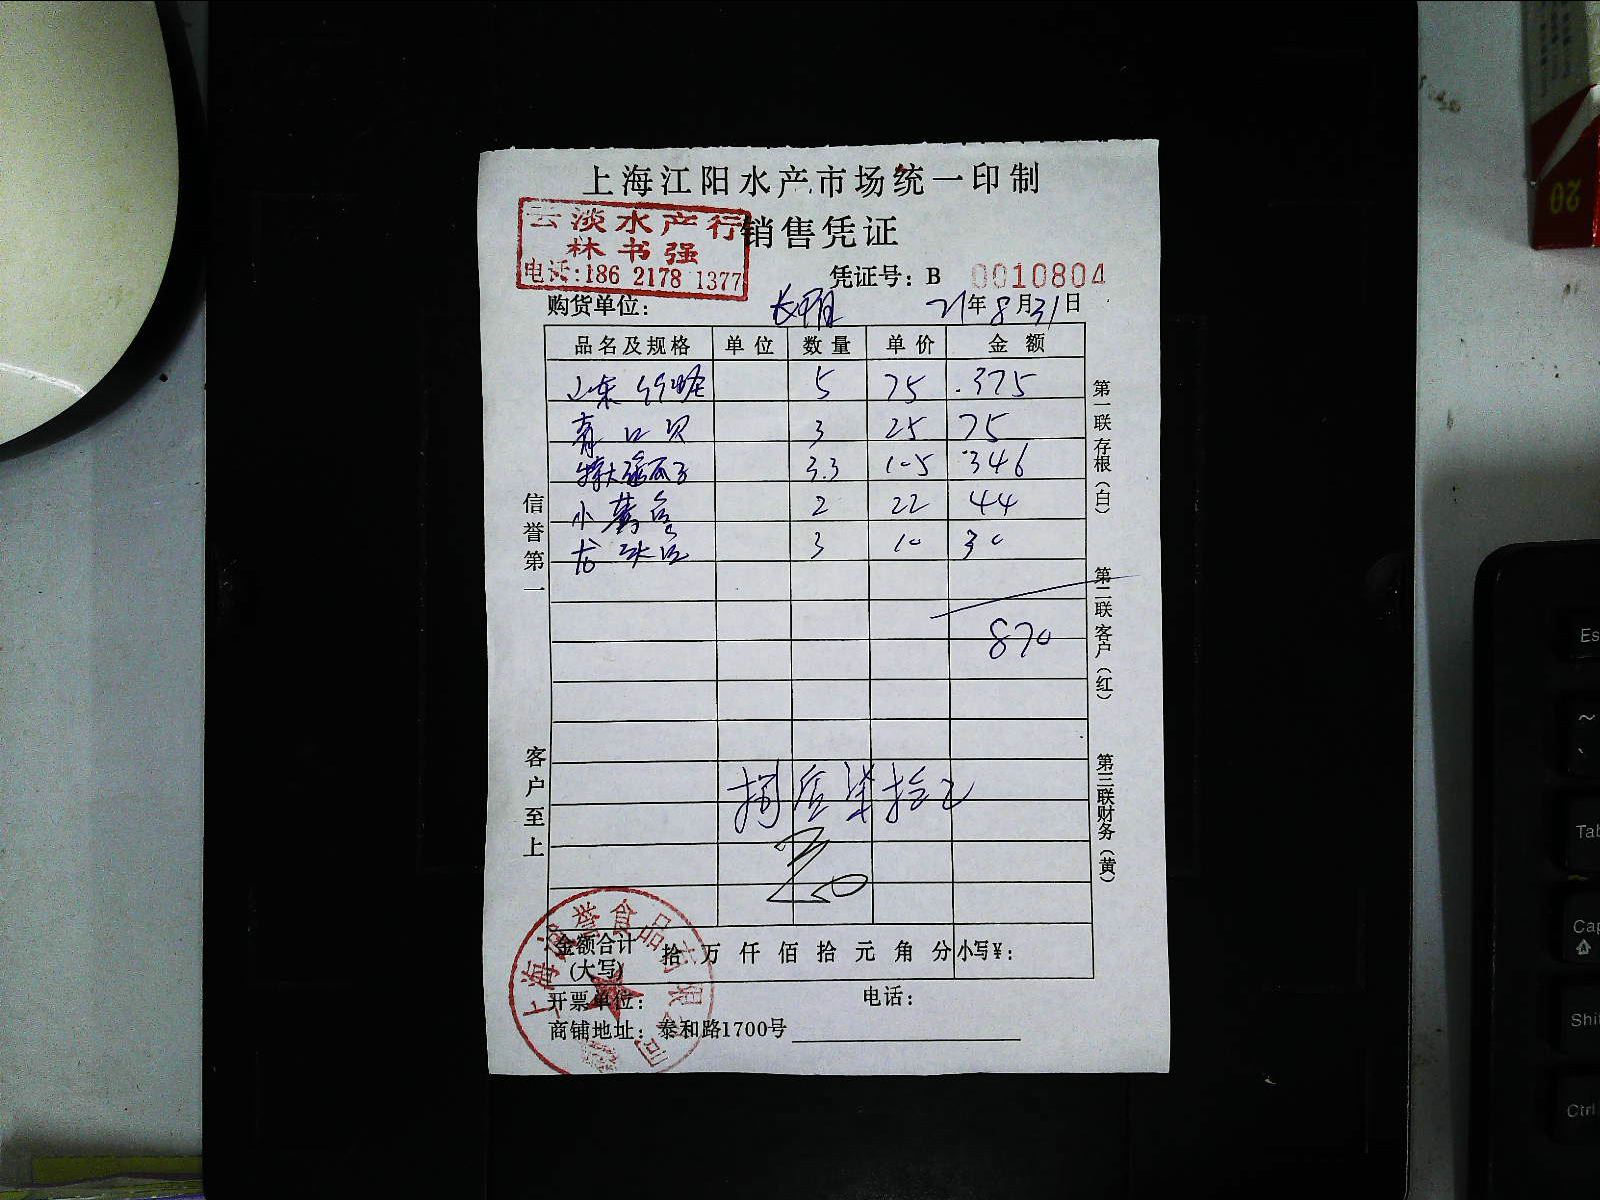 上海江阳水产市场统一印制
云淡水产行
林书强
电话:186 2178 1377
销售凭证
凭证号: B 0010804
购货单位: 21年8月31日
品名及规格 单位 数量 单价 金额
山东 5 75 375
青口贝 3 25 75
特大 3.3 105 346
小 2 22 44
龙 3 10 30
870
捌佰柒拾元
信誉第一
客户至上
第一联存根(白)
第二联客户(红)
第三联财务(黄)
金额合计(大写) 拾万仟佰拾元角分 小写¥:
开票单位: 电话:
商铺地址: 泰和路1700号
20
Es
~
、
Tab
Cap
Shi
Ctrl